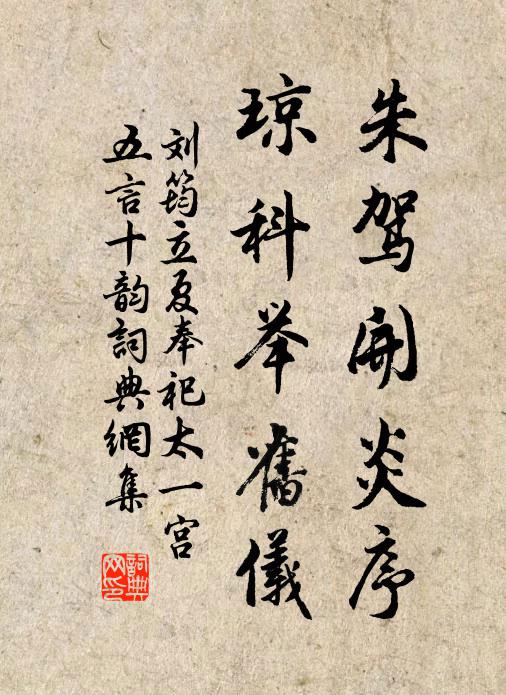 朱驾开炎序
琼科举舊儀
刘筠立夏奉祀太一宫
五言十韵詞典網集
詞典网印